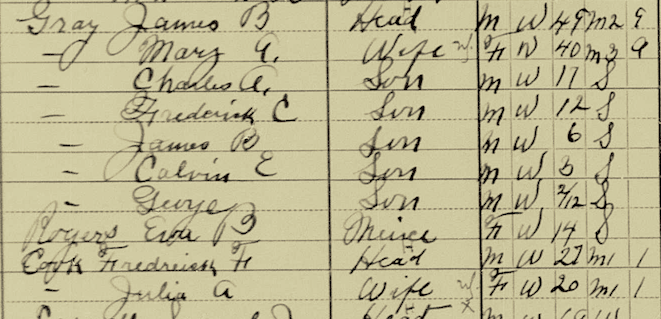 Gray James B Head M W 49 M2 9
— Mary A. Wife F W 40 M3 9
— Charles A. Son M W 17 S
— Frederick C Son M W 12 S
— James B Son M W 6 S
— Calvin E Son M W 3 S
— George Son M W 2/12 S
Rogers Eva B Neice F W 14 S
Cook Fredreick F Head M W 27 M1 1
— Julia A Wife F W 20 M1 1
Head M W